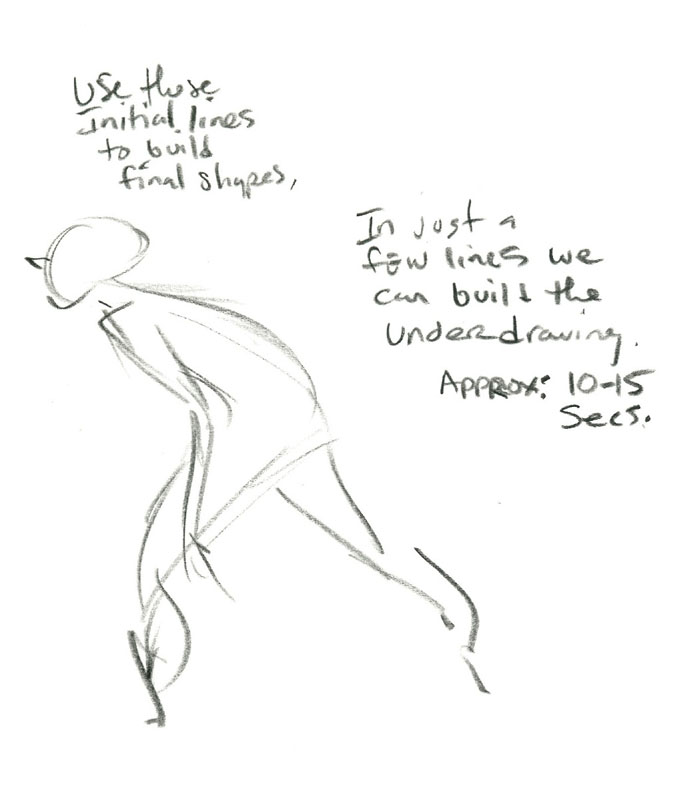 Use those
Initial lines
to build
final shapes,
In just a
few lines we
can build the
Underdrawing.
Approx: 10-15
Secs.